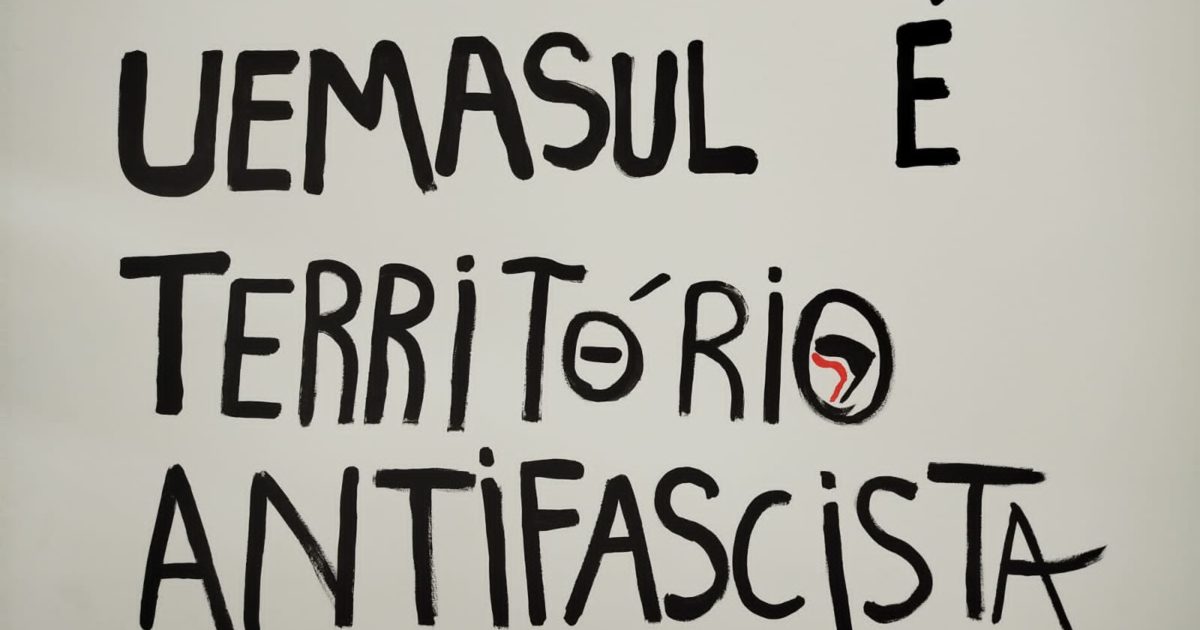 UEMASUL É
TERRiTÓRiO
ANTiFASCiSTA